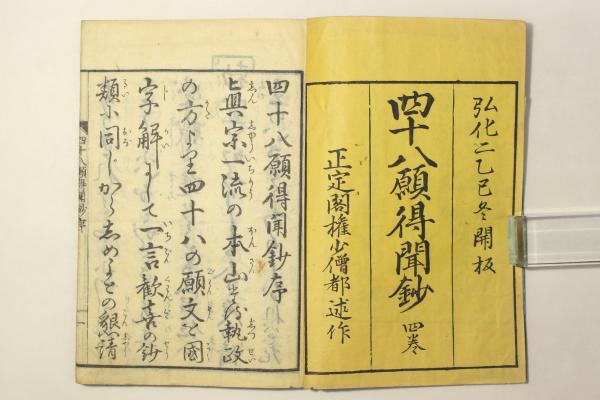 弘化二乙巳冬開板
四十八願得聞鈔 四巻
正定閣権少僧都述作
四十八願得聞鈔序
眞宗一流の本山の執政
の方より四十八の願文を國
字解にして一言歓喜の鈔
類に同じからしめよとの懇請
四十八願得聞鈔序